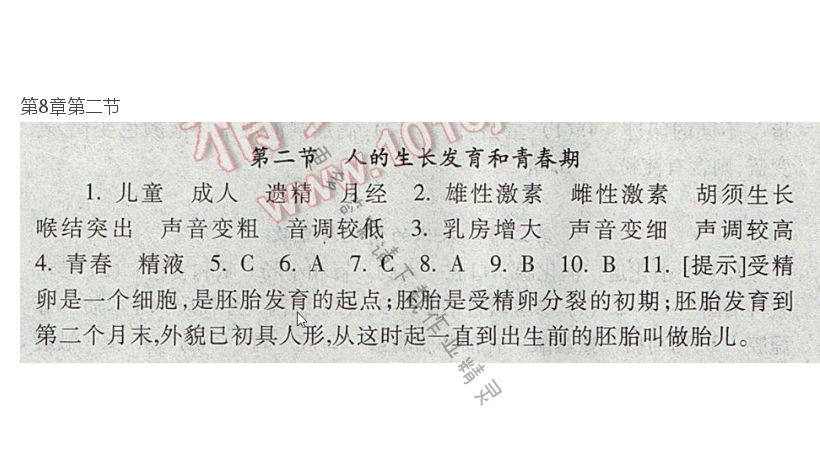 第8章第二节
第二节 人的生长发育和青春期
1. 儿童 成人 遗精 月经 2. 雄性激素 雌性激素 胡须生长
喉结突出 声音变粗 音调较低 3. 乳房增大 声音变细 声调较高
4. 青春 精液 5. C 6. A 7. C 8. A 9. B 10. B 11. [提示]受精
卵是一个细胞,是胚胎发育的起点;胚胎是受精卵分裂的初期;胚胎发育到
第二个月末,外貌已初具人形,从这时起一直到出生前的胚胎叫做胎儿。